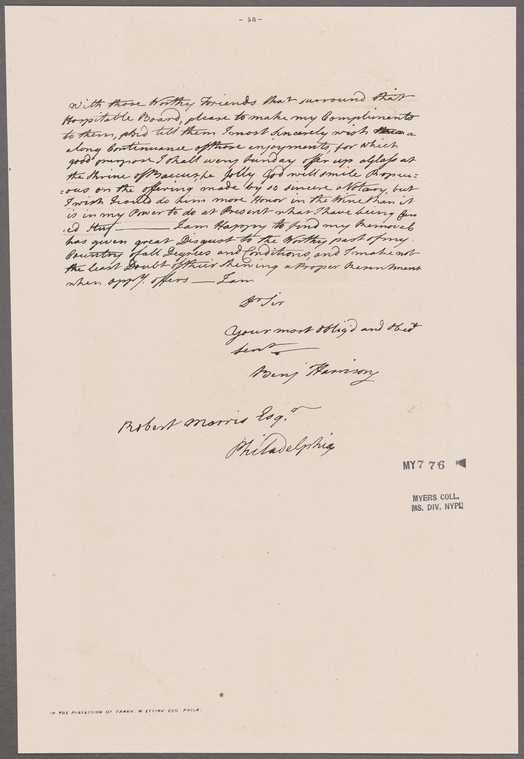 - 58 -
With those Worthy Friends that surround that
Hospitable Board, please to make my Compliments
to them, and tell them I most sincerely wish a
a long Continuance of those enjoyments, for which
good purpose I shall every Sunday offer up a glass at
the Shrine of the Jolly God will smile Propici-
=ous on the offering made by so sincere a Votary, but
I wish I could do him more Honor in the Wine than it
is in my Power to do at Present what I have being
ed Stuf ——— I am Happy to find my Removal
has given great Disgust to the Worthy part of my
Country of all Degrees and Conditions, and I make not
the least Doubt of their shewing a Proper Resentment
when oppy. offers — I am
Dr Sir
Your most Oblig'd and Obedt
Servt
Benj Harrison
Robert Morris Esqr
Philadelphia
MY 7 76
MYERS COLL.
MS. DIV. NYPL
IN THE POSSESSION OF FRANK M. ETTING ESQ. PHILA.